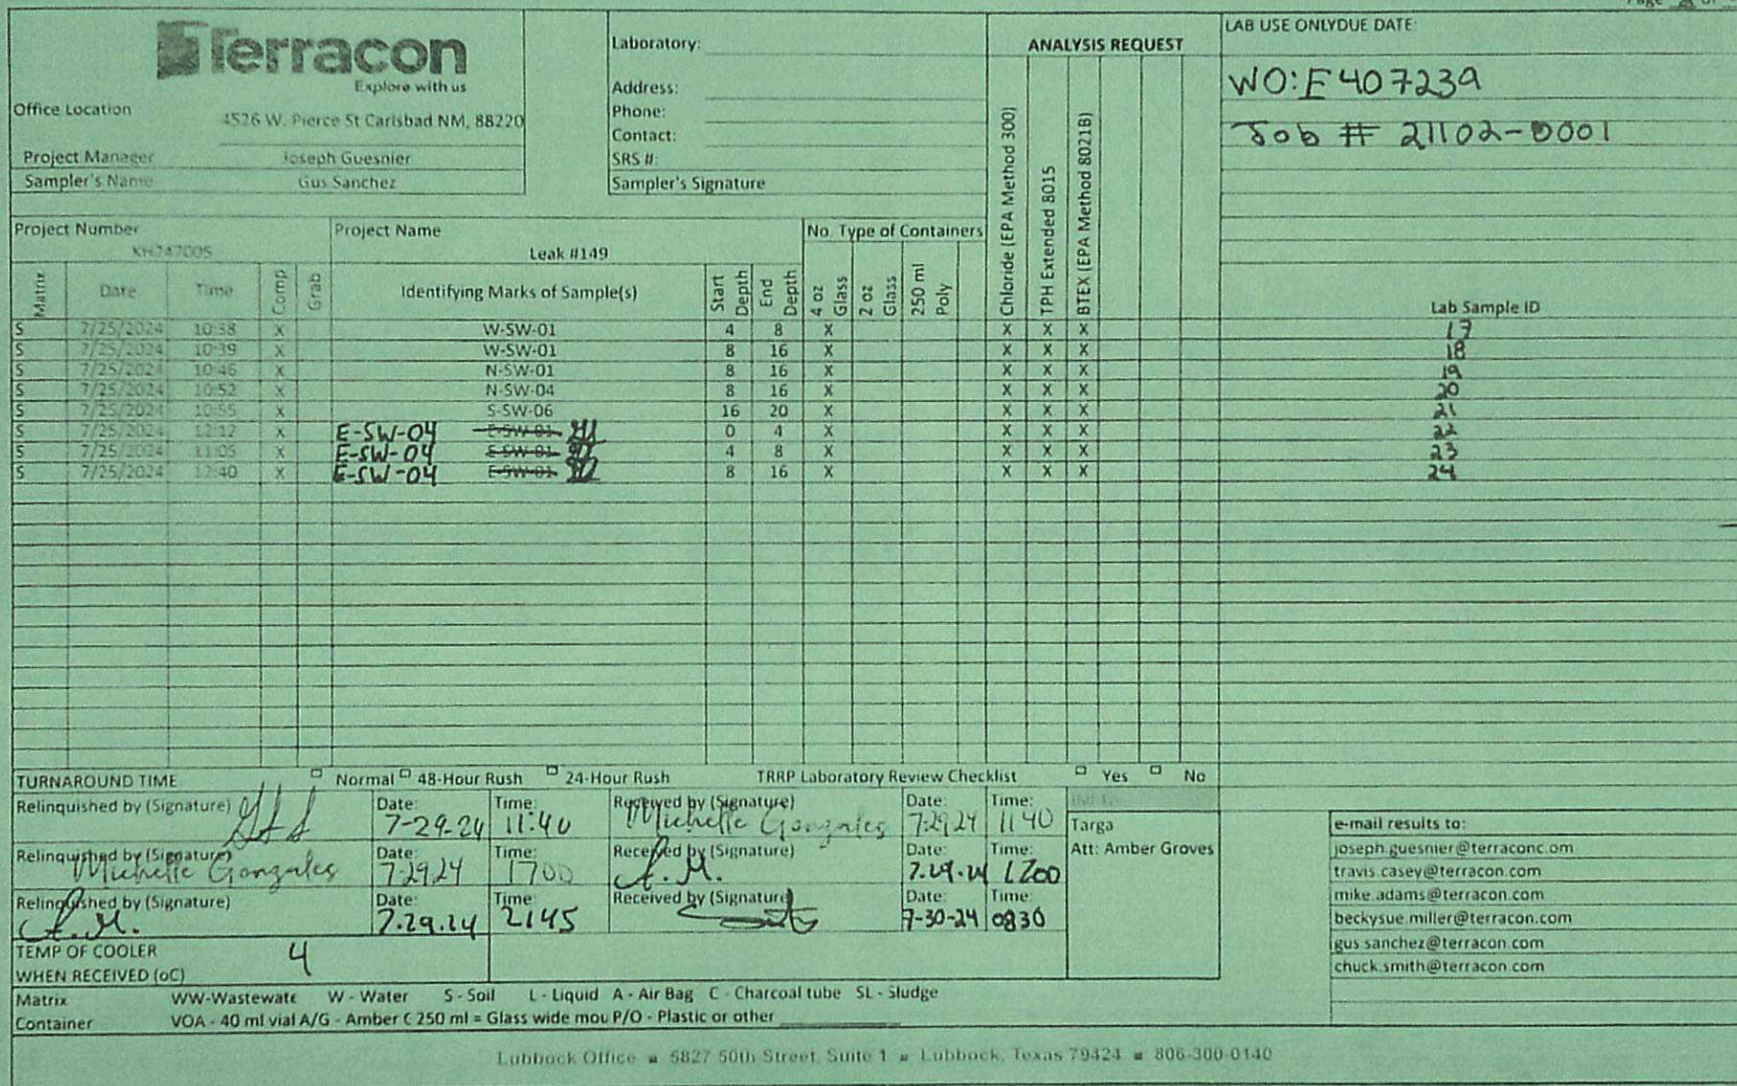 Terracon
Explore with us
Office Location
4526 W. Pierce St Carlsbad NM, 88220
Project Manager Joseph Guesnier
Sampler's Name Gus Sanchez
Laboratory:
Address:
Phone:
Contact:
SRS #:
Sampler's Signature
ANALYSIS REQUEST
LAB USE ONLYDUE DATE:
WO: E407239
Job # 21102-0001
Project Number
KH247005
Project Name
Leak #149
No. Type of Containers
Matrix Date Time Comp Grab Identifying Marks of Sample(s) Start Depth End Depth 4 oz Glass 2 oz Glass 250 ml Poly Chloride (EPA Method 300) TPH Extended 8015 BTEX (EPA Method 8021B) Lab Sample ID
S 7/25/2024 10:38 X W-SW-01 4 8 X X X X 17
S 7/25/2024 10:39 X W-SW-01 8 16 X X X X 18
S 7/25/2024 10:46 X N-SW-01 8 16 X X X X 19
S 7/25/2024 10:52 X N-SW-04 8 16 X X X X 20
S 7/25/2024 10:55 X S-SW-06 16 20 X X X X 21
S 7/25/2024 12:12 X E-SW-04 E-SW-01 0 4 X X X X 22
S 7/25/2024 11:05 X E-SW-04 E-SW-01 4 8 X X X X 23
S 7/25/2024 12:40 X E-SW-04 E-SW-01 8 16 X X X X 24
TURNAROUND TIME Normal 48-Hour Rush 24-Hour Rush TRRP Laboratory Review Checklist Yes No
Relinquished by (Signature) Date: 7-29-24 Time: 11:40 Received by (Signature) Michelle Gonzales Date: 7.29.24 Time: 1140
Relinquished by (Signature) Michelle Gonzales Date: 7.29.24 Time: 1700 Received by (Signature) A.M. Date: 7.29.24 Time: 1700
Relinquished by (Signature) A.M. Date: 7.29.24 Time: 2145 Received by (Signature) Date: 7-30-24 Time: 0830
Bill To
Targa
Att: Amber Groves
e-mail results to:
joseph.guesnier@terraconc.om
travis.casey@terracon.com
mike.adams@terracon.com
beckysue.miller@terracon.com
gus.sanchez@terracon.com
chuck.smith@terracon.com
TEMP OF COOLER 4
WHEN RECEIVED (oC)
Matrix WW-Wastewate W - Water S - Soil L - Liquid A - Air Bag C - Charcoal tube SL - Sludge
Container VOA - 40 ml vial A/G - Amber C 250 ml = Glass wide mou P/O - Plastic or other
Lubbock Office ■ 5827 50th Street, Suite 1 ■ Lubbock, Texas 79424 ■ 806-300-0140